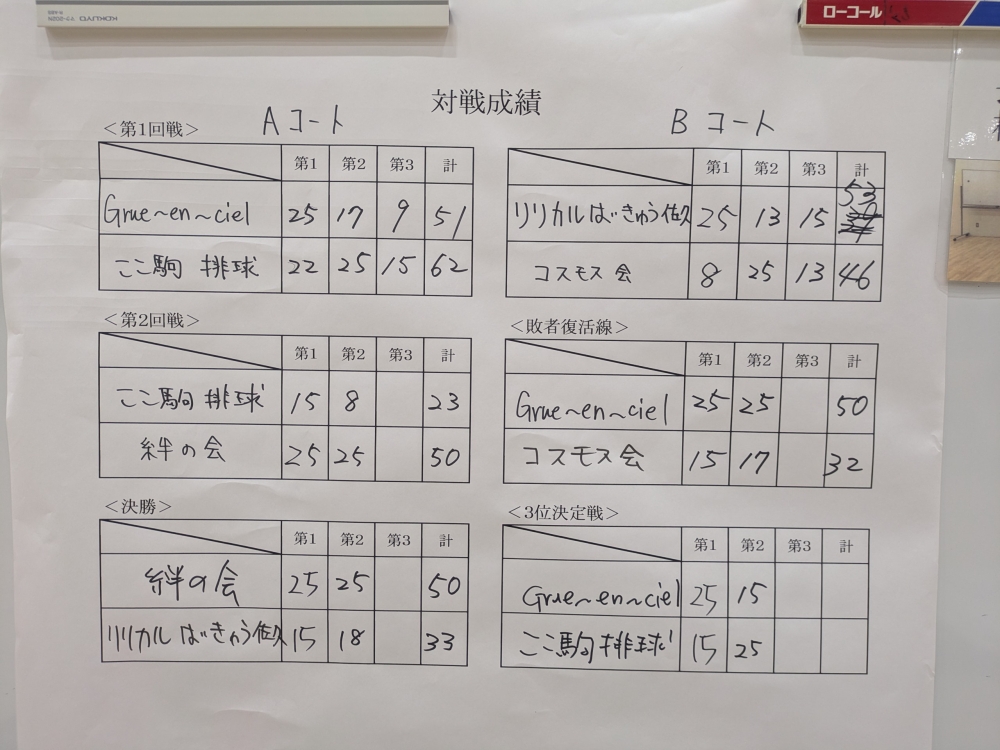 KOKUYO
ローコール
対戦成績
Aコート
Bコート
<第1回戦>
第1 第2 第3 計
Grue~en~ciel 25 17 9 51
ここ駒 排球 22 25 15 62
第1 第2 第3 計
リリカルばきゅう佐久 25 13 15 53
コスモス会 8 25 13 46
<第2回戦>
第1 第2 第3 計
ここ駒 排球 15 8 23
絆の会 25 25 50
<敗者復活線>
第1 第2 第3 計
Grue~en~ciel 25 25 50
コスモス会 15 17 32
<決勝>
第1 第2 第3 計
絆の会 25 25 50
リリカルばきゅう佐久 15 18 33
<3位決定戦>
第1 第2 第3 計
Grue~en~ciel 25 15
ここ駒排球 15 25